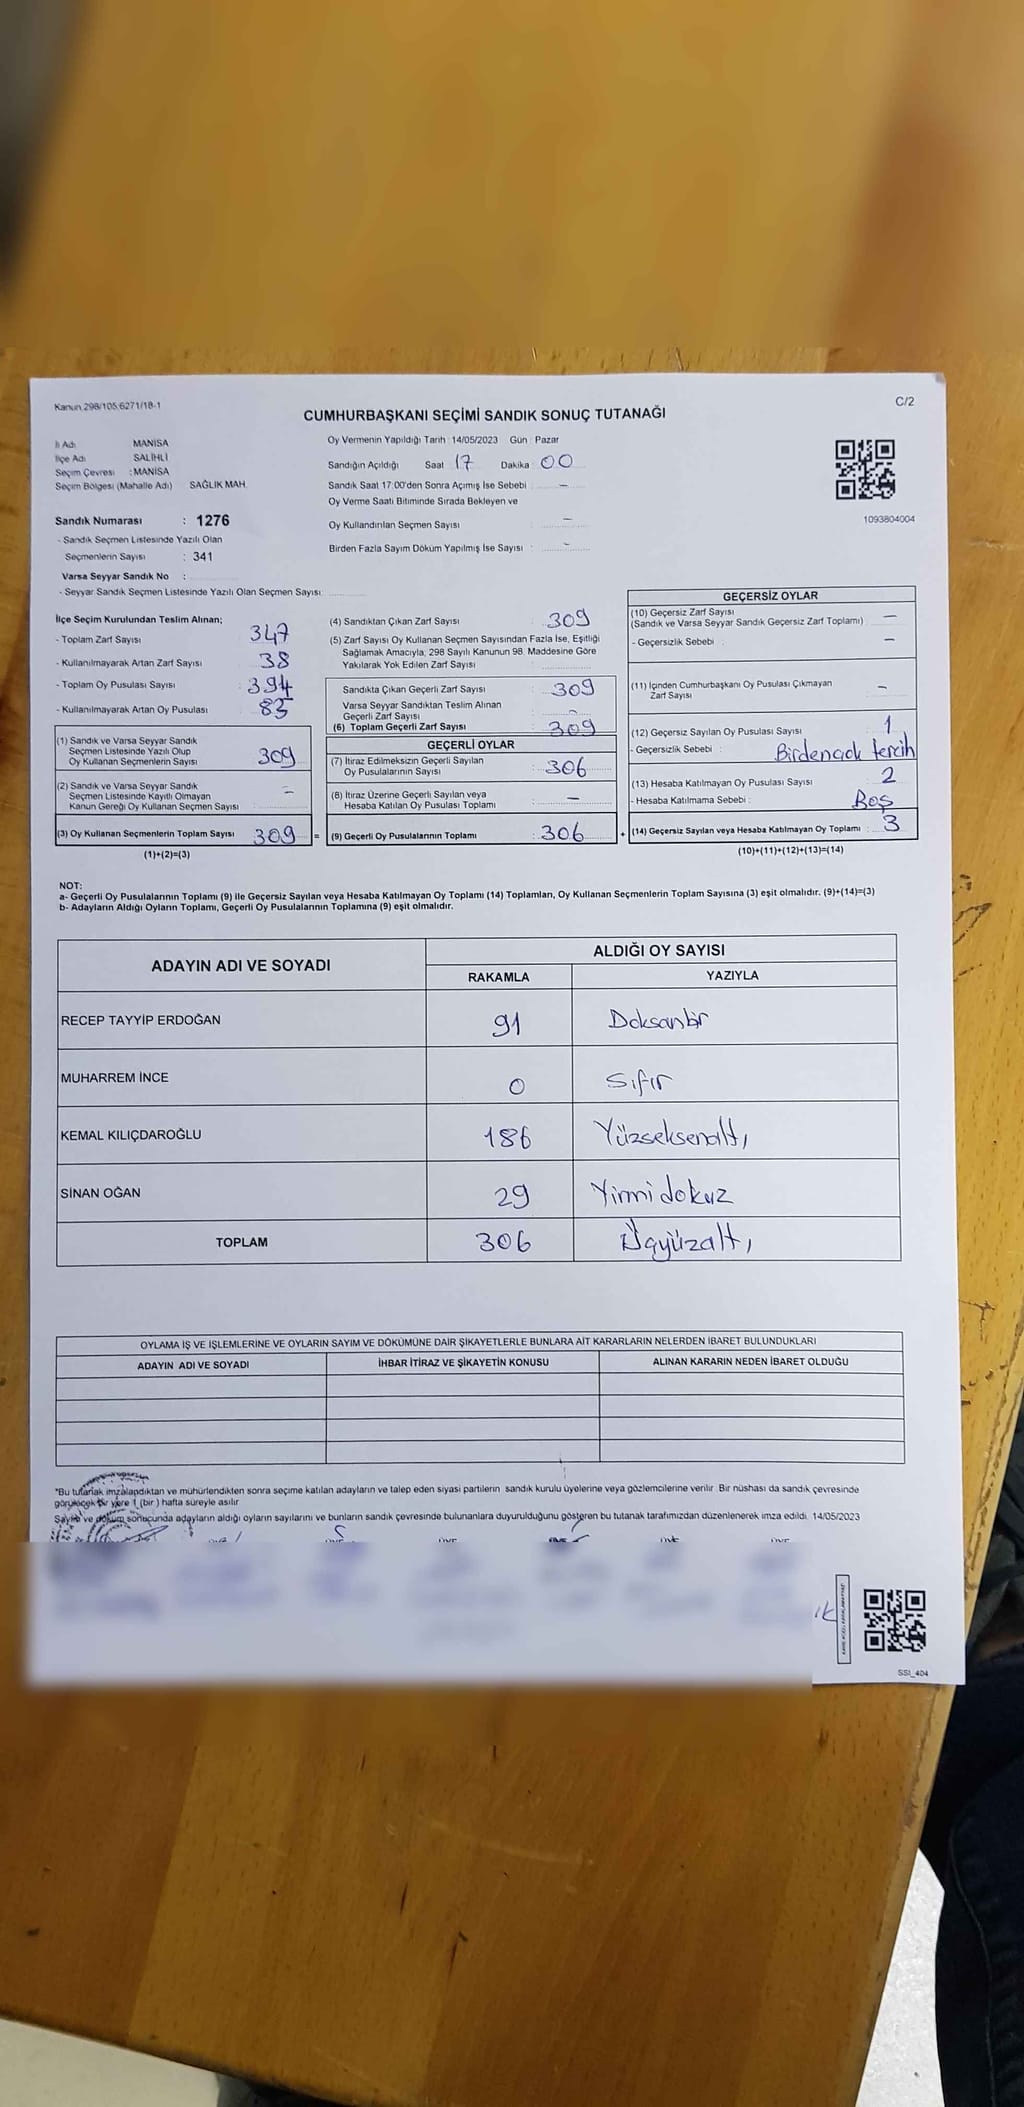 Kanun 298/105 6271/18-1
C/2
CUMHURBAŞKANI SEÇİMİ SANDIK SONUÇ TUTANAĞI
İli Adı : MANİSA
İlçe Adı SALİHLİ
Seçim Çevresi : MANİSA
Seçim Bölgesi (Mahalle Adı) SAĞLIK MAH.
Sandık Numarası : 1276
- Sandık Seçmen Listesinde Yazılı Olan
Seçmenlerin Sayısı : 341
Varsa Seyyar Sandık No :
- Seyyar Sandık Seçmen Listesinde Yazılı Olan Seçmen Sayısı:
Oy Vermenin Yapıldığı Tarih 14/05/2023 Gün : Pazar
Sandığın Açıldığı Saat 17 Dakika : 00
Sandık Saat 17:00'den Sonra Açımış İse Sebebi : —
Oy Verme Saati Bitiminde Sırada Bekleyen ve
Oy Kullandırılan Seçmen Sayısı : —
Birden Fazla Sayım Döküm Yapılmış İse Sayısı : -
1093804004
İlçe Seçim Kurulundan Teslim Alınan;
- Toplam Zarf Sayısı 347
- Kullanılmayarak Artan Zarf Sayısı 38
- Toplam Oy Pusulası Sayısı 394
- Kullanılmayarak Artan Oy Pusulası 83
(1) Sandık ve Varsa Seyyar Sandık
Seçmen Listesinde Yazılı Olup
Oy Kullanan Seçmenlerin Sayısı 309
(2) Sandık ve Varsa Seyyar Sandık
Seçmen Listesinde Kayıtlı Olmayan
Kanun Gereği Oy Kullanan Seçmen Sayısı : -
(3) Oy Kullanan Seçmenlerin Toplam Sayısı 309 =
(1)+(2)=(3)
(4) Sandıktan Çıkan Zarf Sayısı : 309
(5) Zarf Sayısı Oy Kullanan Seçmen Sayısından Fazla İse, Eşitliği
Sağlamak Amacıyla, 298 Sayılı Kanunun 98. Maddesine Göre
Yakılarak Yok Edilen Zarf Sayısı :
Sandıkta Çıkan Geçerli Zarf Sayısı : 309
Varsa Seyyar Sandıktan Teslim Alınan
Geçerli Zarf Sayısı : -
(6) Toplam Geçerli Zarf Sayısı : 309
GEÇERLİ OYLAR
(7) İtiraz Edilmeksizin Geçerli Sayılan
Oy Pusulalarının Sayısı : 306
(8) İtiraz Üzerine Geçerli Sayılan veya
Hesaba Katılan Oy Pusulası Toplamı : —
(9) Geçerli Oy Pusulalarının Toplamı : 306 +
GEÇERSİZ OYLAR
(10) Geçersiz Zarf Sayısı
(Sandık ve Varsa Seyyar Sandık Geçersiz Zarf Toplamı) : —
- Geçersizlik Sebebi : —
(11) İçinden Cumhurbaşkanı Oy Pusulası Çıkmayan
Zarf Sayısı : -
(12) Geçersiz Sayılan Oy Pusulası Sayısı : 1
- Geçersizlik Sebebi : Birdençok tercih
(13) Hesaba Katılmayan Oy Pusulası Sayısı 2
- Hesaba Katılmama Sebebi : Boş
(14) Geçersiz Sayılan veya Hesaba Katılmayan Oy Toplamı : 3
(10)+(11)+(12)+(13)=(14)
NOT:
a- Geçerli Oy Pusulalarının Toplamı (9) ile Geçersiz Sayılan veya Hesaba Katılmayan Oy Toplamı (14) Toplamları, Oy Kullanan Seçmenlerin Toplam Sayısına (3) eşit olmalıdır. (9)+(14)=(3)
b- Adayların Aldığı Oyların Toplamı, Geçerli Oy Pusulalarının Toplamına (9) eşit olmalıdır.
ADAYIN ADI VE SOYADI ALDIĞI OY SAYISI
RAKAMLA YAZIYLA
RECEP TAYYİP ERDOĞAN 91 Doksanbir
MUHARREM İNCE 0 Sıfır
KEMAL KILIÇDAROĞLU 186 Yüzseksenaltı
SİNAN OĞAN 29 Yirmidokuz
TOPLAM 306 Üçyüzaltı
OYLAMA İŞ VE İŞLEMLERİNE VE OYLARIN SAYIM VE DÖKÜMÜNE DAİR ŞİKAYETLERLE BUNLARA AİT KARARLARIN NELERDEN İBARET BULUNDUKLARI
ADAYIN ADI VE SOYADI İHBAR İTİRAZ VE ŞİKAYETİN KONUSU ALINAN KARARIN NEDEN İBARET OLDUĞU
*Bu tutanak imzalandıktan ve mühürlendikten sonra seçime katılan adayların ve talep eden siyasi partilerin sandık kurulu üyelerine veya gözlemcilerine verilir. Bir nüshası da sandık çevresinde
görülecek bir yere 1 (bir) hafta süreyle asılır
Sayım ve döküm sonucunda adayların aldığı oyların sayılarını ve bunların sandık çevresinde bulunanlara duyurulduğunu gösteren bu tutanak tarafımızdan düzenlenerek imza edildi. 14/05/2023
SSI_404